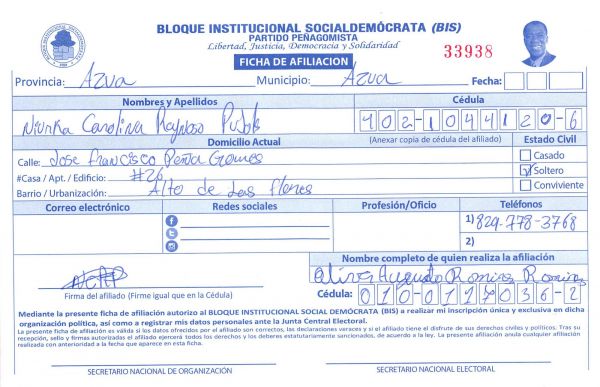 BLOQUE INSTITUCIONAL SOCIALDEMÓCRATA (BIS)
PARTIDO PEÑAGOMISTA
Libertad, Justicia, Democracia y Solidaridad
33938
FICHA DE AFILIACION
Provincia: Azua Municipio: Azua Fecha:
Nombres y Apellidos Cédula
Niurka Carolina Reynoso Pujols 402-1044120-6
Domicilio Actual (Anexar copia de cédula del afiliado) Estado Civil
Calle: Jose Francisco Peña Gomes Casado
#Casa / Apt. / Edificio: #26 Soltero
Barrio / Urbanización: Alto de Las Flores Conviviente
Correo electrónico Redes sociales Profesión/Oficio Teléfonos
1) 829-778-3768
2)
Nombre completo de quien realiza la afiliación
Augusto Ramirez Ramirez
Firma del afiliado (Firme igual que en la Cédula) Cédula: 010-0117036-2
Mediante la presente ficha de afiliación autorizo al BLOQUE INSTITUCIONAL SOCIAL DEMÓCRATA (BIS) a realizar mi inscripción única y exclusiva en dicha
organización política, así como a registrar mis datos personales ante la Junta Central Electoral.
La presente ficha de afiliación es válida si los datos ofrecidos por el afiliado son correctos, las declaraciones veraces y si el afiliado tiene el disfrute de sus derechos civiles y políticos. Tras su
recepción, sello y firmas autorizadas el afiliado ejercerá todos los derechos y los deberes estatutariamente sancionados, de acuerdo a la ley. La presente afiliación anula cualquier afiliación
realizada con anterioridad a la fecha que aparece en esta ficha.
SECRETARIO NACIONAL DE ORGANIZACIÓN SECRETARIO NACIONAL ELECTORAL